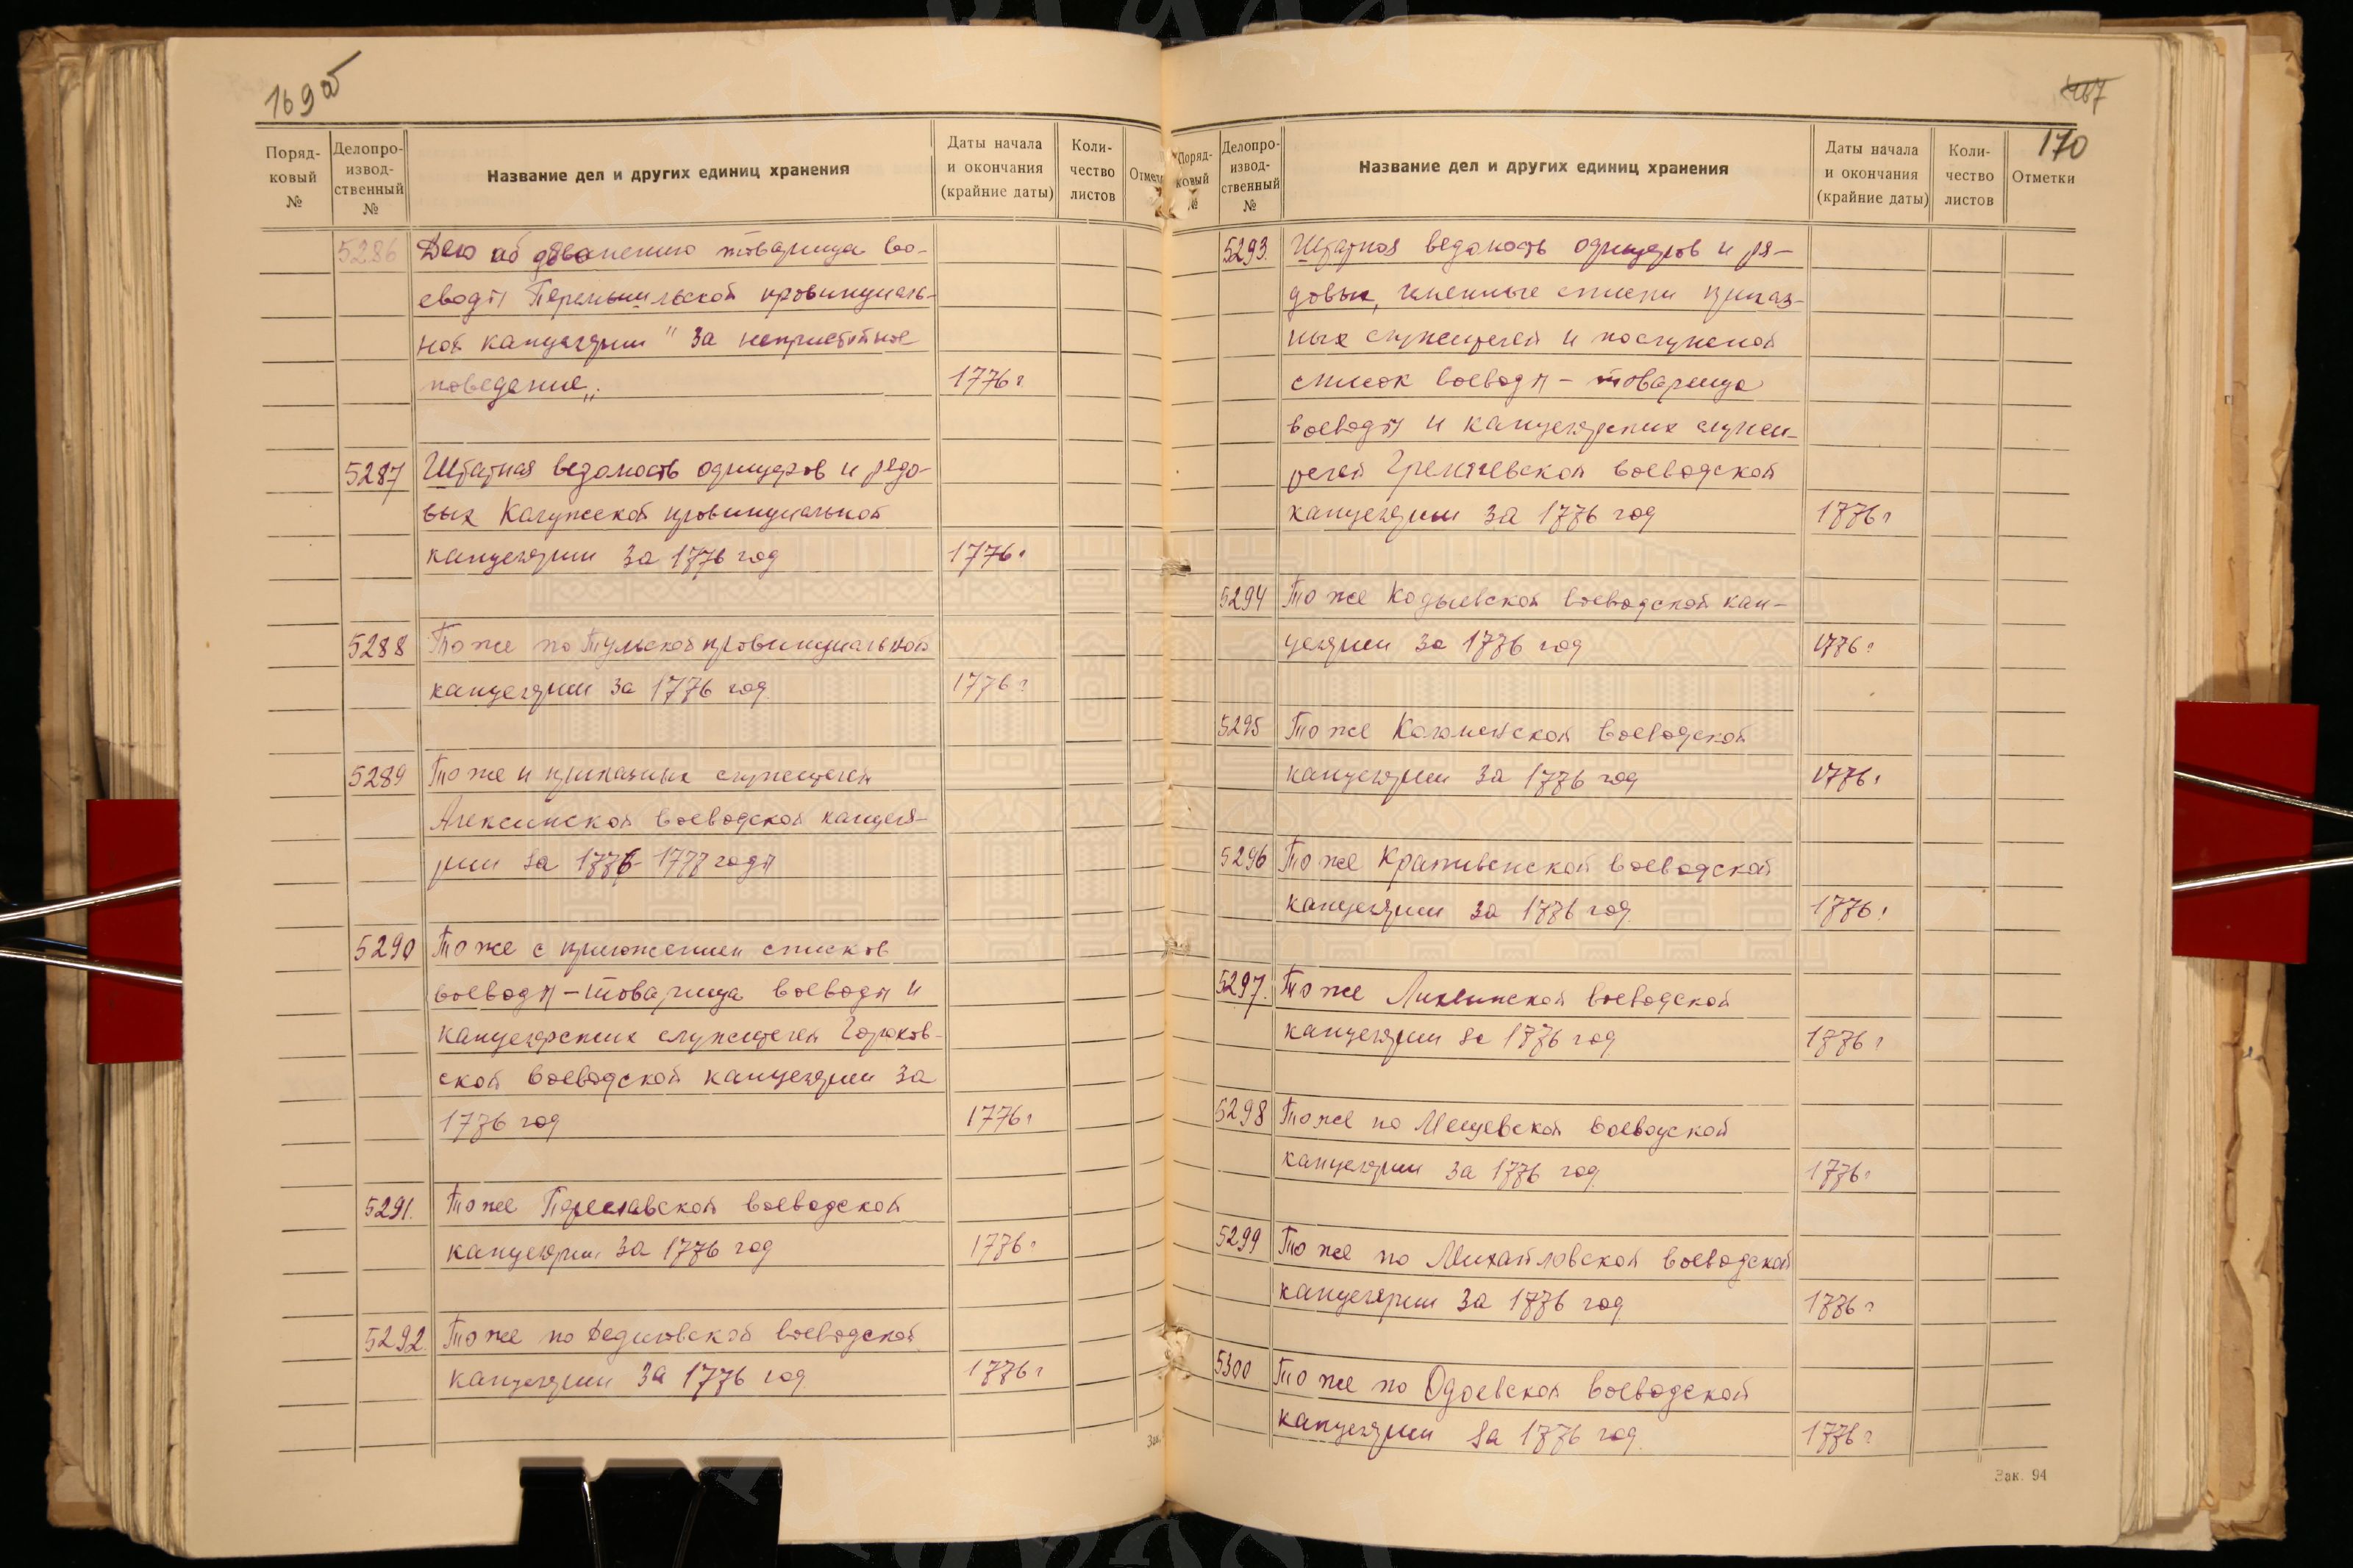 169об
Поряд-
ковый
№
Делопро-
извод-
ственный
№
Название дел и других единиц хранения
Даты начала
и окончания
(крайние даты)
Коли-
чество
листов
Отмет
5286 Дело об обвинению товарища во-
еводы Перемышльской провинциаль-
ной канцелярии "за непристойное
поведение„. 1776г
5287 Штатная ведомость офицеров и рядо-
вых Калужской провинциальной
канцелярии за 1776 год 1776г
5288 То же по Тульской провинциальной
канцелярии за 1776 год. 1776г
5289 То же и приказных служителей
Алексинской воеводской канцеля-
рии за 1776-1777 годы
5290 То же с приложением списков
воеводы-товарища воеводы и
канцелярских служителей
ской воеводской канцелярии за
1776 год 1776г
5291. То же воеводской
канцелярии за 1776 год 1776г
5292. То же по Дедиловской воеводской
канцелярии за 1776 год. 1776г
167
170
Поряд-
ковый
№
Делопро-
извод-
ственный
№
Название дел и других единиц хранения
Даты начала
и окончания
(крайние даты)
Коли-
чество
листов
Отметки
5293. Штатная ведомость офицеров и ря-
довых, именные списки приказ-
ных служителей и послужной
список воеводы - товарища
воеводы и канцелярских служи-
телей воеводской
канцелярии за 1776 год 1776г
5294 То же воеводской кан-
целярии за 1776 год 1776г
5295 То же Коломенской воеводской
канцелярии за 1776 год 1776г
5296 То же Крапивенской воеводской
канцелярии за 1776 год. 1776г
5297. То же Лихвинской воеводской
канцелярии за 1776 год 1776г
5298 То же по Мещевской воеводской
канцелярии за 1776 год. 1776г
5299 То же по Михайловской воеводской
канцелярии за 1776 год 1776г
5300 То же по Одоевской воеводской
канцелярии за 1776 год. 1776г
Зак. 94